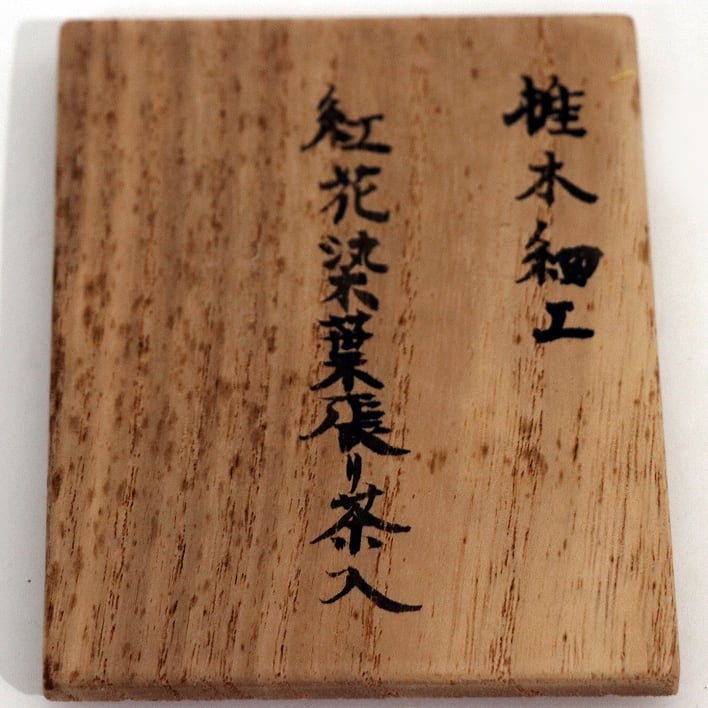 木細工
紅花染葉張り茶入